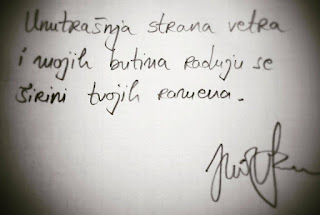 Unutrašnja strana vetra
i mojih butina raduju se
širini tvojih ramena.